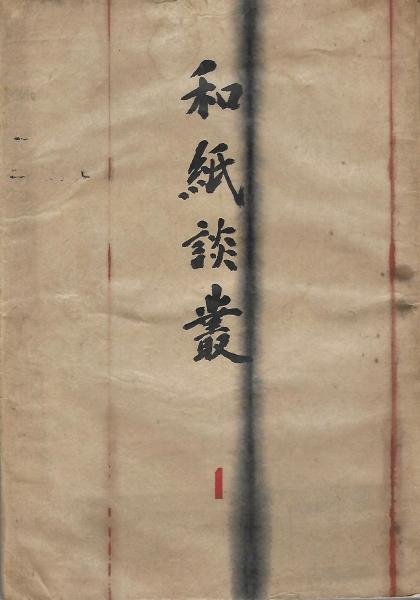 和紙談叢
1